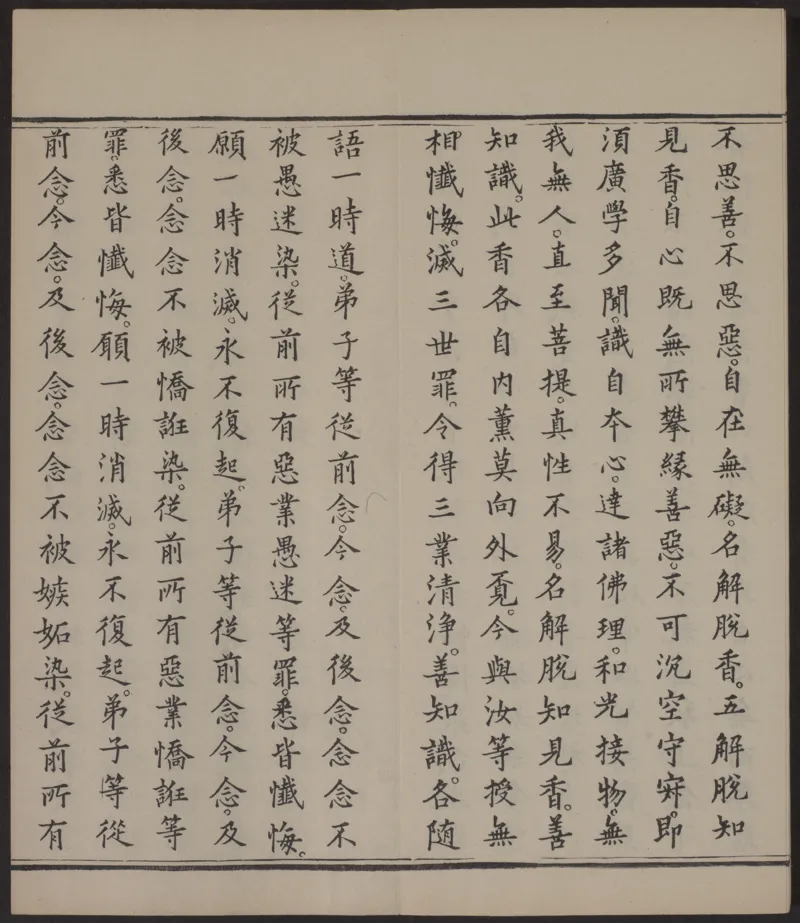 不思善。不思惡。自在無礙。名解脫香。五解脫知
見香。自心既無所攀緣善惡。不可沉空守𡧘。即
須廣學多聞。識自本心。達諸佛理。和光接物。無
我無人。直至菩提。真性不易。名解脫知見香。善
知識。此香各自內薰莫向外覔。今與汝等授無
相懺悔。滅三世罪。令得三業清淨。善知識。各隨
語一時道。弟子等從前念。今念。及後念。念念不
被愚迷染。從前所有惡業愚迷等罪。悉皆懺悔。
願一時消滅。永不復起。弟子等從前念。今念。及
後念。念念不被憍誑染。從前所有惡業憍誑等
罪。悉皆懺悔。願一時消滅。永不復起。弟子等從
前念。今念。及後念。念念不被嫉妬染。從前所有